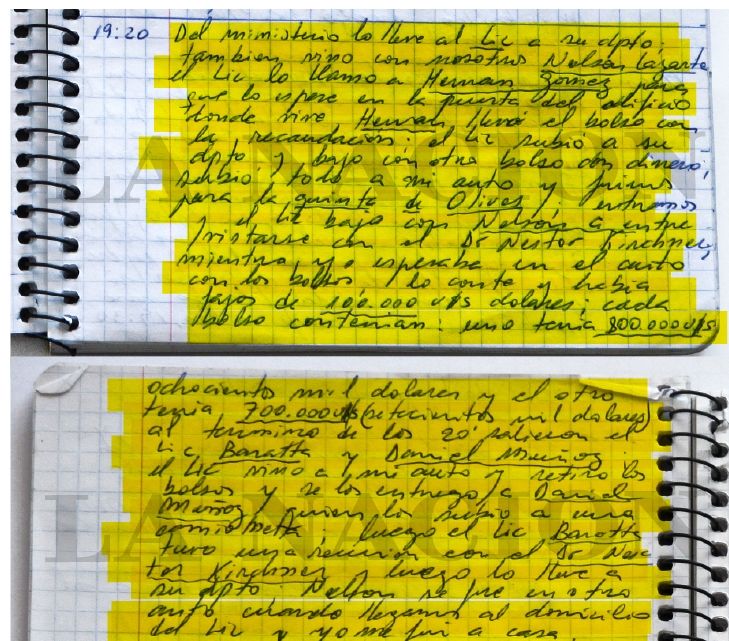 19:20 Del ministerio lo lleve al Lic a su dpto,
tambien vino con nosotros Nelson Lazarte
el Lic lo llamo a Hernan Gomez para
que lo espere en la puerta del edificio
donde vive Hernan llevó el bolso con
la recaudación, el Lic subió a su
dpto y bajo con otro bolso con dinero,
subió todo a mi auto y fuimos
para la quinta de Olivos, entramos
y el Lic bajo con Nelson a entre
vistarse con el Dr Nestor Kirchner,
mientras yo esperaba en el auto
con los bolsos lo conte y habia
fajos de 100.000 u$s dolares; cada
bolso contenian: uno tenia 800.000 u$s
ochocientos mil dolares y el otro
tenia 700.000 u$s (setecientos mil dolares)
al termino de los 20' salieron el
Lic Baratta y Daniel Muñoz
el Lic vino a mi auto y retiro los
bolsos y se los entrego a Daniel
Muñoz, quien los subio a una
camioneta, luego el Lic Baratta
tuvo una reunion con el Dr Nes
tor Kirchner, luego lo lleve a
su dpto, Nelson se fue en otro
auto cuando llegamos al domicilio
del Lic y yo me fui a casa.
LA NACION
LA NACION